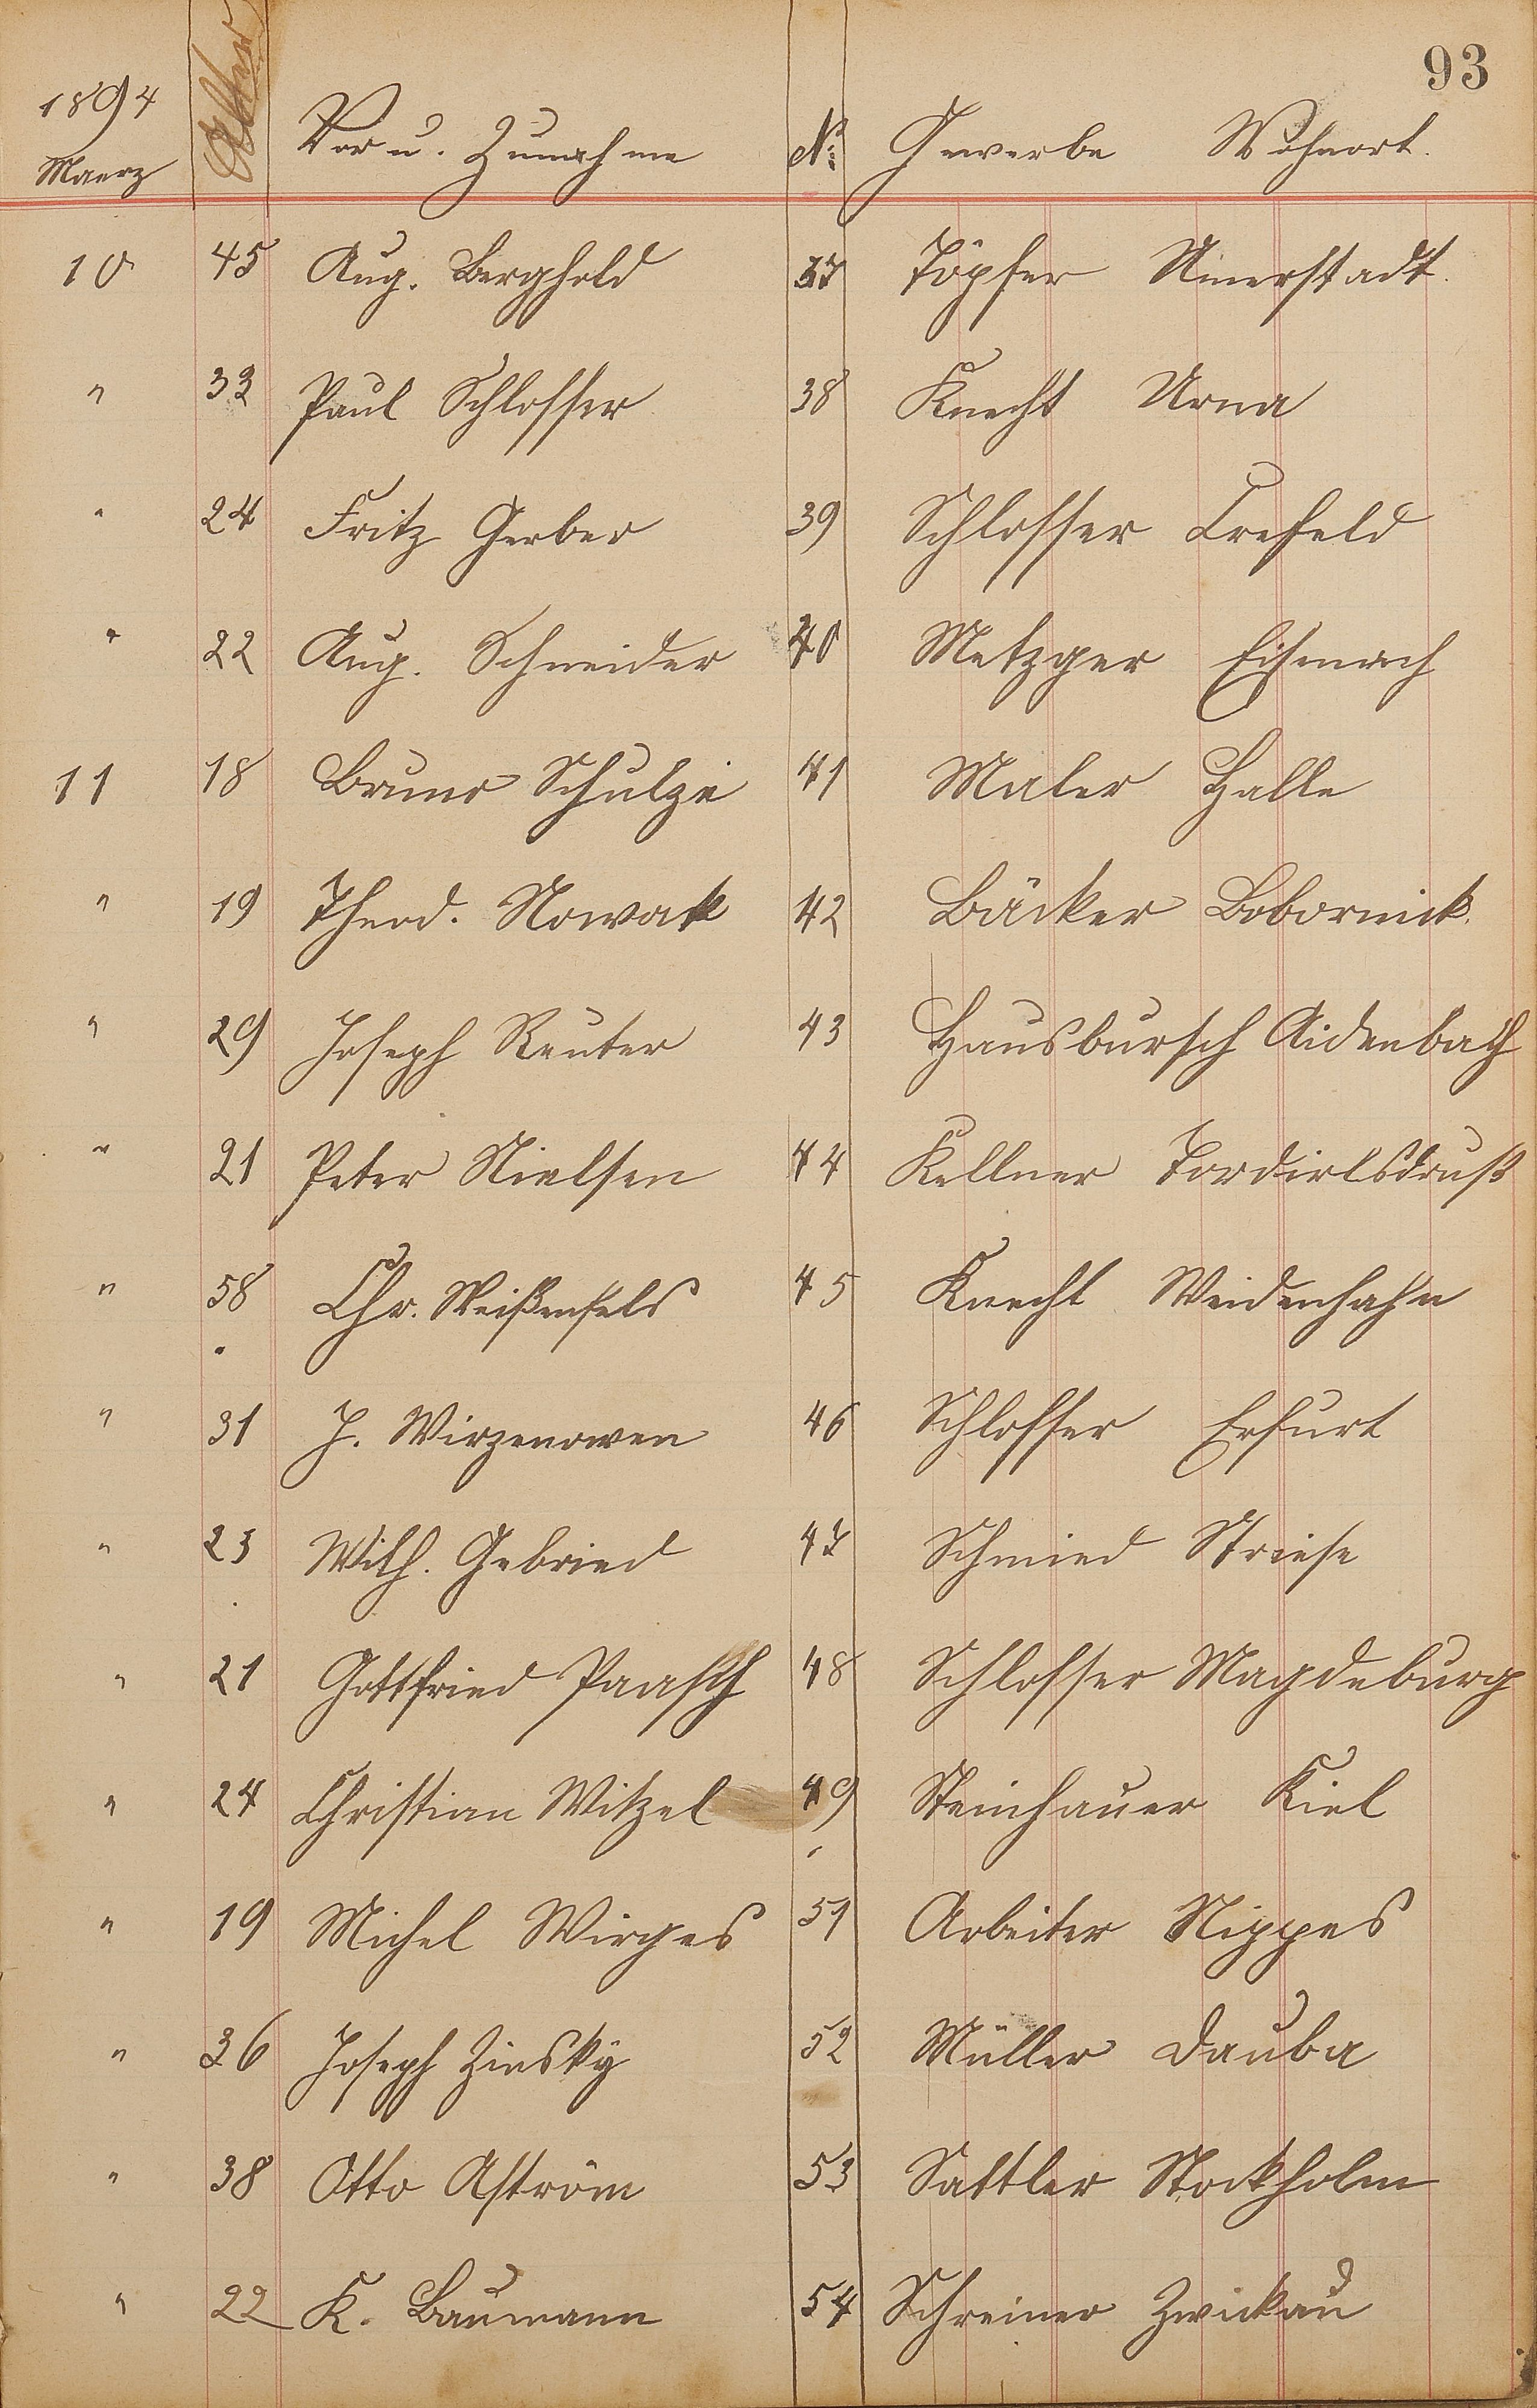 93
1894 Maerz Alter Vor u. Zunahme No. Gewerbe Wohnort.
10 45 Aug. Berghold 37 Töpfer
" 33 Paul Schlosser 38 Knecht Unna
" 24 Fritz Gerber 39 Schlosser Crefeld
" 22 Aug. Schneider 40 Metzger Eisenach
11 18 Bruno Schulze 41 Maler Halle
" 19 Theod. Nowak 42 Bäcker Bobornick.
" 29 Joseph Reuter 43 Hausbursch Aidenbach
" 21 Peter Nielsen 44 Kellner
" 58 Chr. Weißenfels 45 Knecht Weidenhahn
" 31 J. Wirzenowen 46 Schlosser Erfurt
" 23 Wilh. Gebried 47 Schmied Striese
" 21 Gottfried Paasch 48 Schlosser Magdeburg
" 24 Christian Witzel 49 Steinhauer Kiel
" 19 Michel Wirges 51 Arbeiter Nippes
" 36 Joseph Zinsky 52 Müller Dauba
" 38 Otto Aström 53 Sattler Stockholm
" 22 K. Baumann 54 Schreiner Zwickau